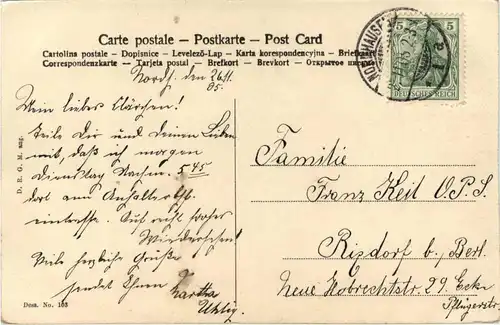 Carte postale – Postkarte – Post Card
Cartolina postale – Dopisnice – Levelező-Lap – Karta korespondencyjna –
Correspondenzkarte – Tarjeta postal – Brefkort – Brevkort – Открытое
Nordh., den 26.11.
05.
Mein liebes Clärchen!
Teile Dir und deinen Lieben
mit, daß ich morgen
Dienstag Nachm. 5 45
dort am Anhalterbhf.
eintreffe. Auf recht frohes
Wiedersehen!
Viele herzliche Grüße
sendet Ihnen
Uhlig.
Familie
Franz Keil O.P.S.
Rixdorf b. Berl.
Neue Hobrechtstr. 29 Ecke
Pflügerstr.
NORDHAUSEN
5 5
DEUTSCHES REICH
D. R. G. M. ang.
Dess. No. 103